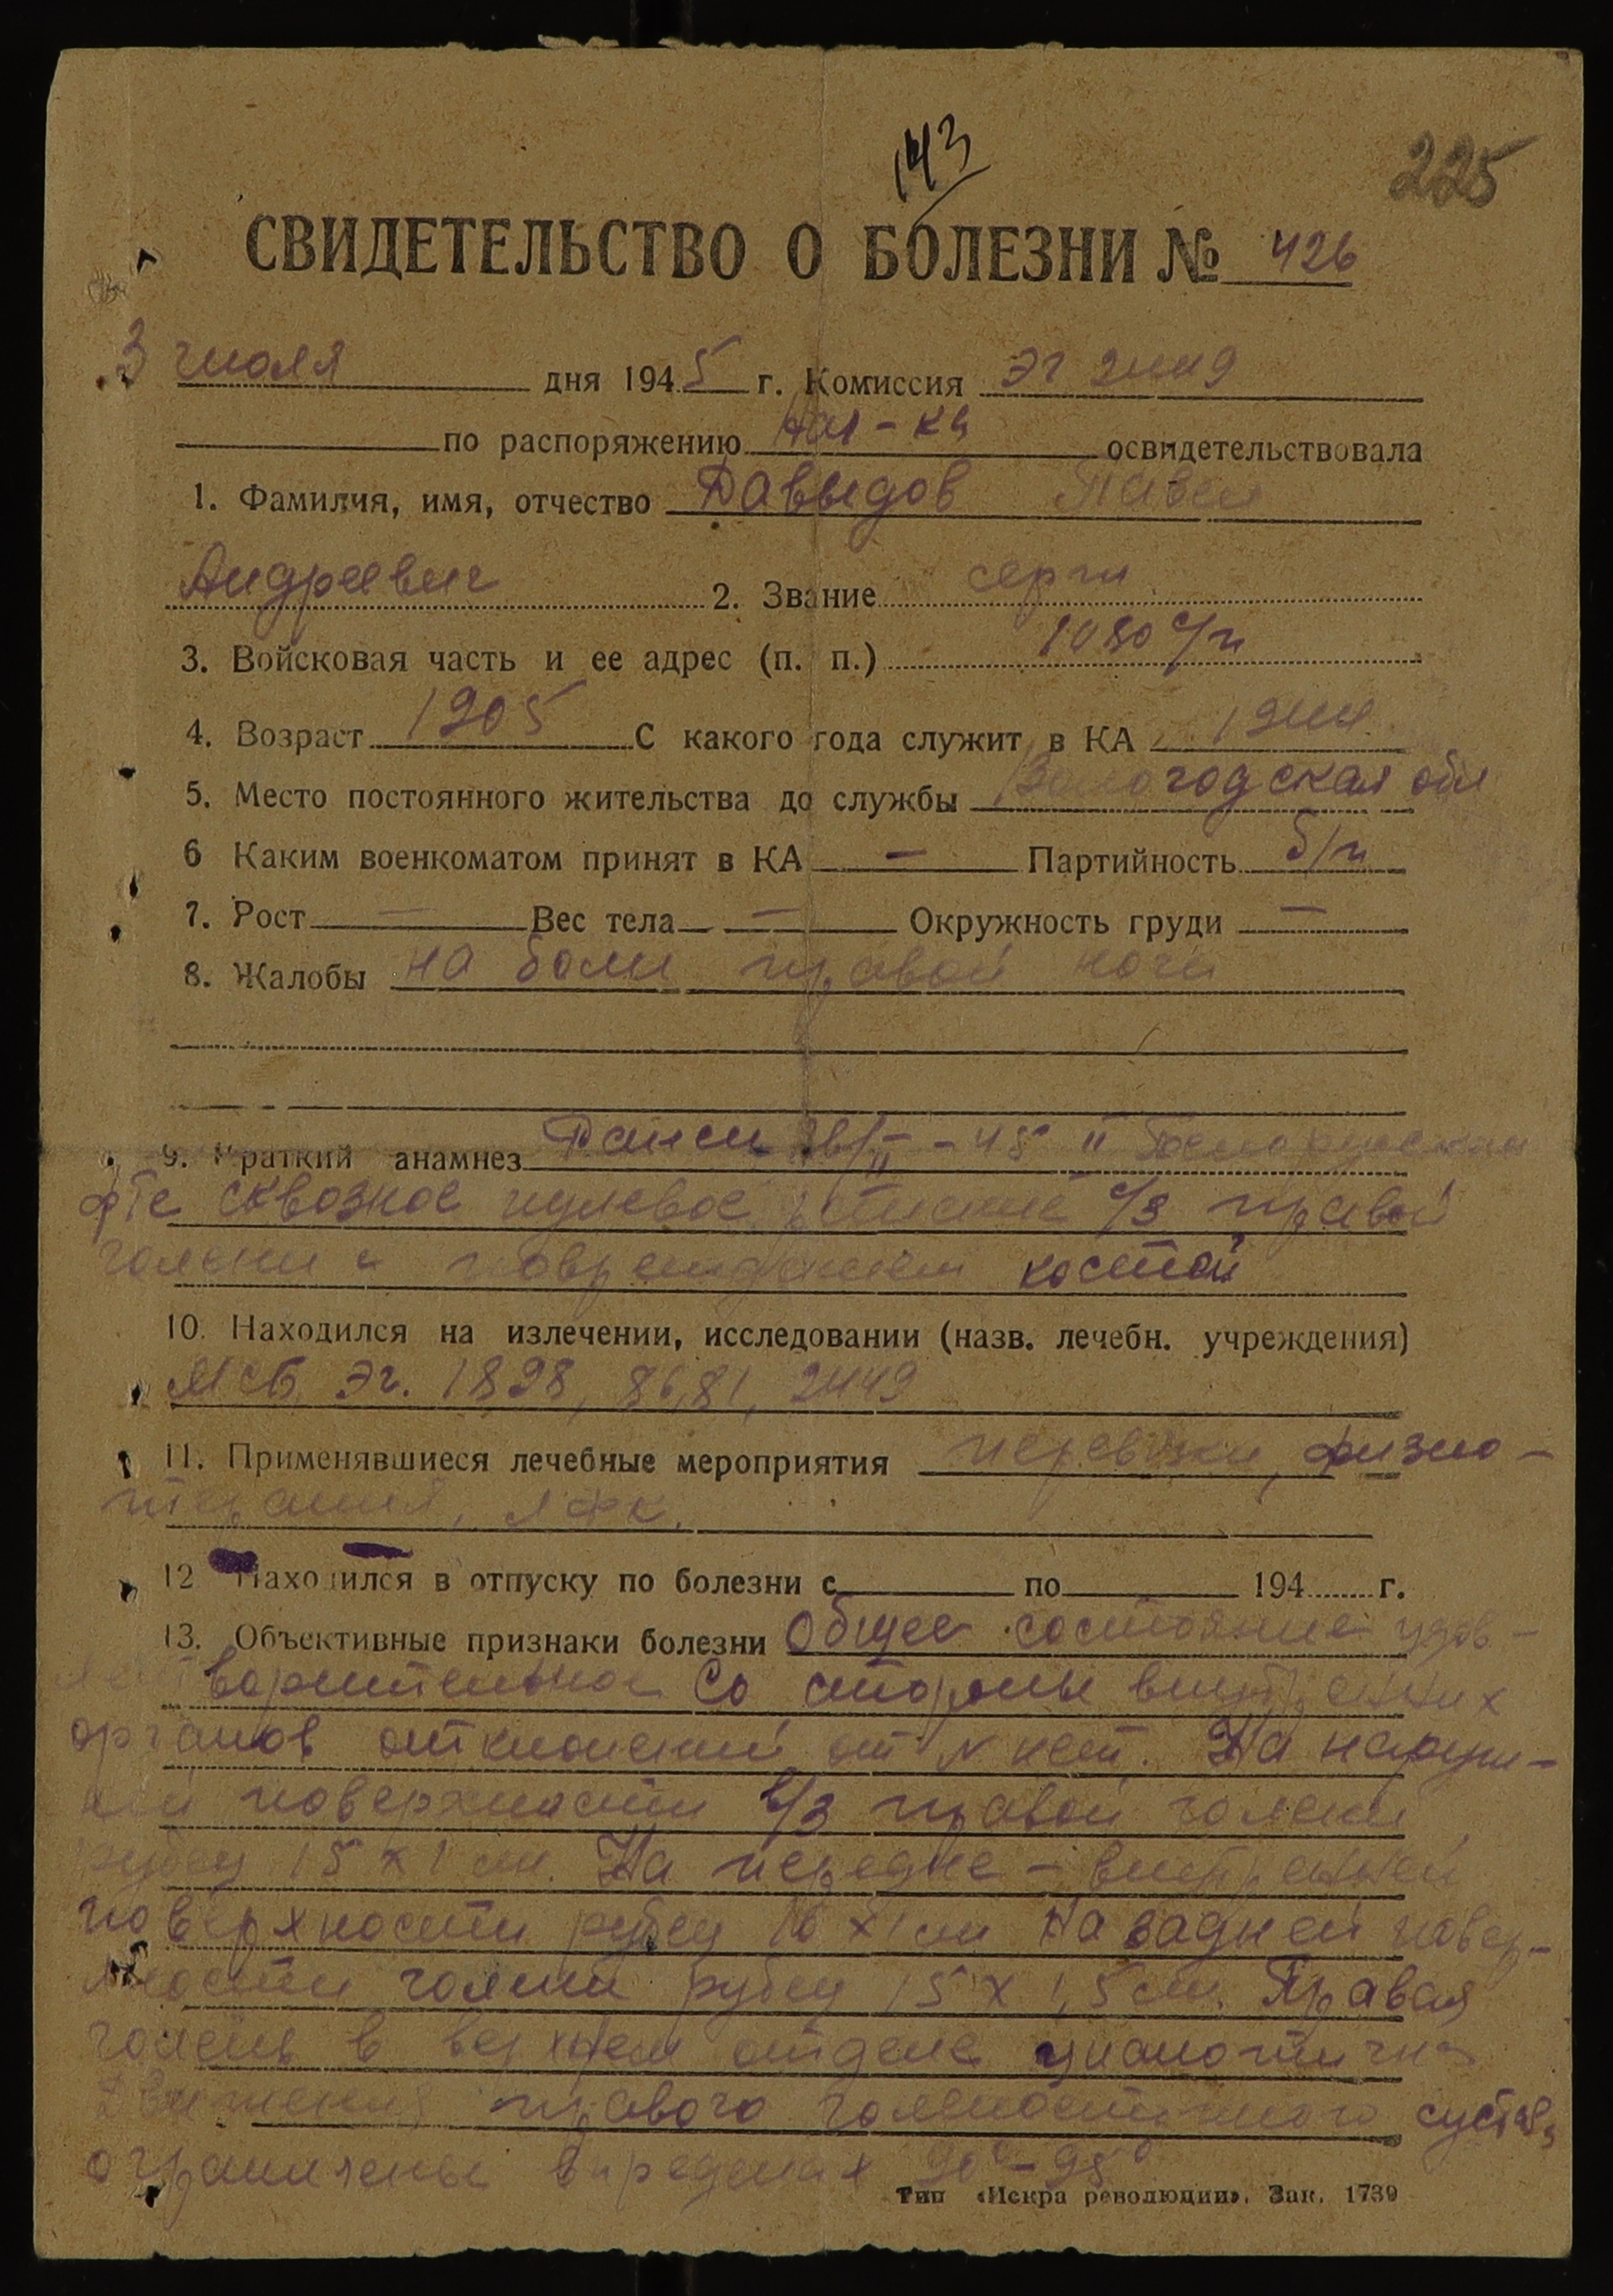 143
225
СВИДЕТЕЛЬСТВО О БОЛЕЗНИ № 426
3 июля дня 1945 г. Комиссия ЭГ 2449
по распоряжению нач-ка освидетельствовала
1. Фамилия, имя, отчество Давыдов Павел
Андреевич 2. Звание серж
3. Войсковая часть и ее адрес (п. п.) 1080 с/п
4. Возраст 1905 С какого года служит в КА 1944
5. Место постоянного жительства до службы Вологодская обл
6 Каким военкоматом принят в КА — Партийность б/п
7. Рост — Вес тела — Окружность груди —
8. Жалобы на боли правой ноги
9. Краткий анамнез Ранен II Белорусском
фте сквозное пулевое ранение с/3 правой
голени с повреждением костей
10. Находился на излечении, исследовании (назв. лечебн. учреждения)
МСБ, ЭГ. 1898, 8681, 2449
11. Применявшиеся лечебные мероприятия перевязки, физио-
терапия, ЛФК.
12 Находился в отпуску по болезни с по 194 г.
13. Объективные признаки болезни Общее состояние удов-
летворительное Со стороны внутренних
органов отклонений от N нет. На наруж-
ной поверхности в/3 правой голени
рубец 15 х 1 см. На передне-внутренней
поверхности рубец 10 х 1 см На задней повер-
хности голени рубец 15 х 1,5 см. Правая
голень в верхнем отделе цианотична
Движения правого голеностопного сустава
ограничены в пределах 90°-95°
Тип «Искра революции». Зак. 1739